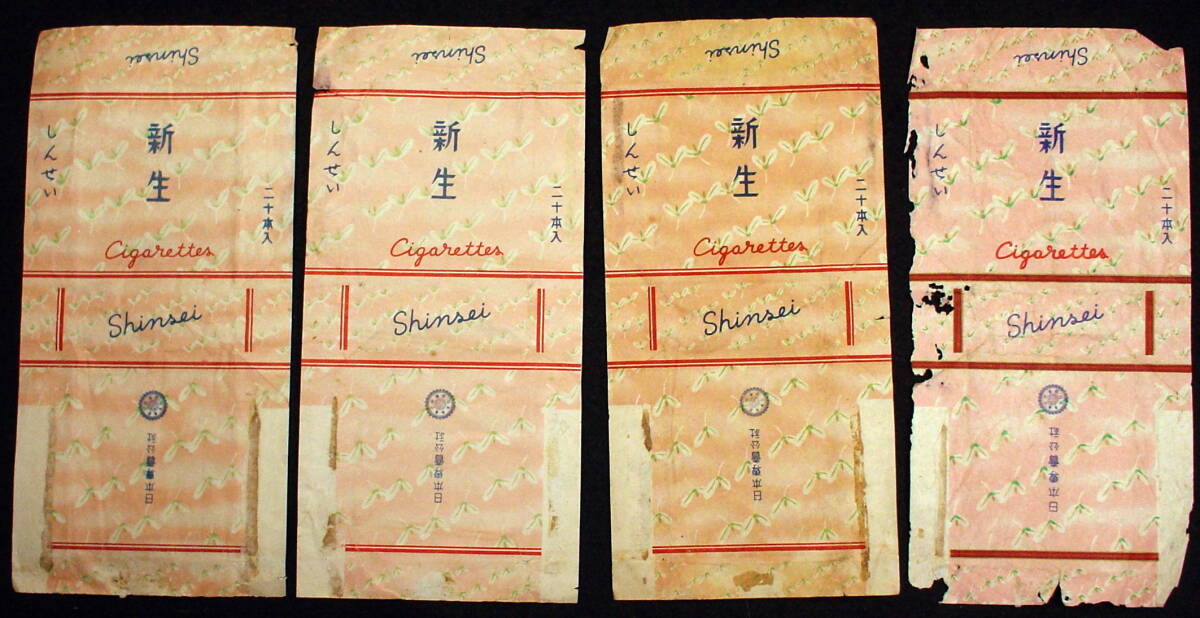 Shinsei
しんせい
新生
二十本入
Cigarettes
Shinsei
日本専賣公社
Shinsei
しんせい
新生
二十本入
Cigarettes
Shinsei
日本専賣公社
Shinsei
しんせい
新生
二十本入
Cigarettes
Shinsei
日本専賣公社
Shinsei
しんせい
新生
二十本入
Cigarettes
Shinsei
日本専賣公社